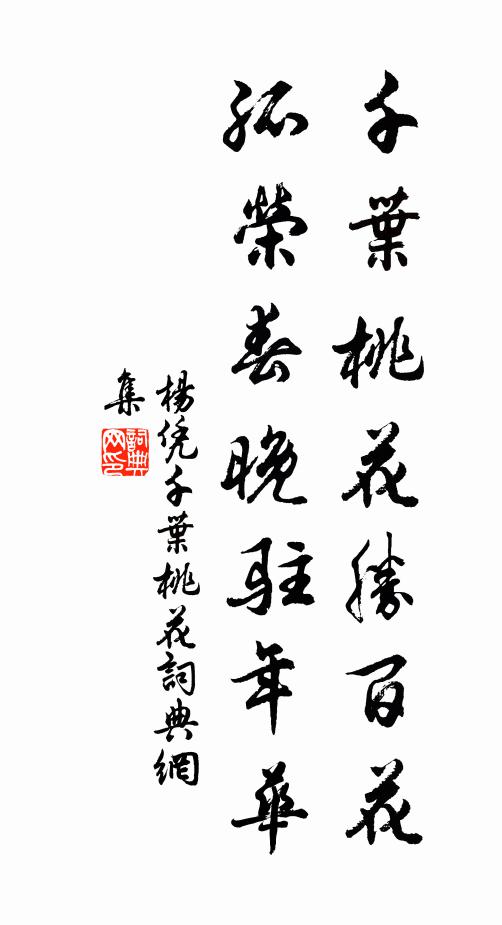 千葉桃花勝百花
孤榮春晚駐年華
楊凭千葉桃花詞典網
集
詞典
网印